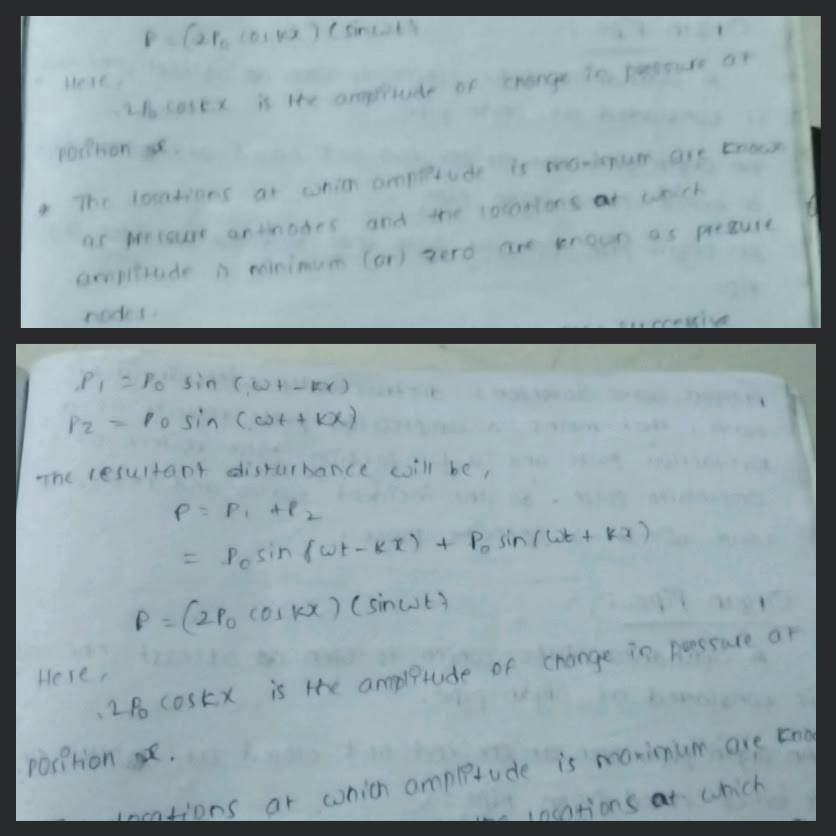 P = (2P₀ cos kx) (sin ωt)
Here,
2P₀ cos kx is the amplitude of change in pressure at
position x.
* The locations at which amplitude is maximum are known
as pressure antinodes and the locations at which
amplitude is minimum (or) zero are known as prezure
nodes.
successive
P₁ = P₀ sin (ωt - kx)
P₂ = P₀ sin (ωt + kx)
The resultant disturbance will be,
P = P₁ + P₂
= P₀ sin (ωt - kx) + P₀ sin (ωt + kx)
P = (2P₀ cos kx) (sin ωt)
Here,
2P₀ cos kx is the amplitude of change in pressure at
position x.
locations at which amplitude is maximum are kno
the locations at which